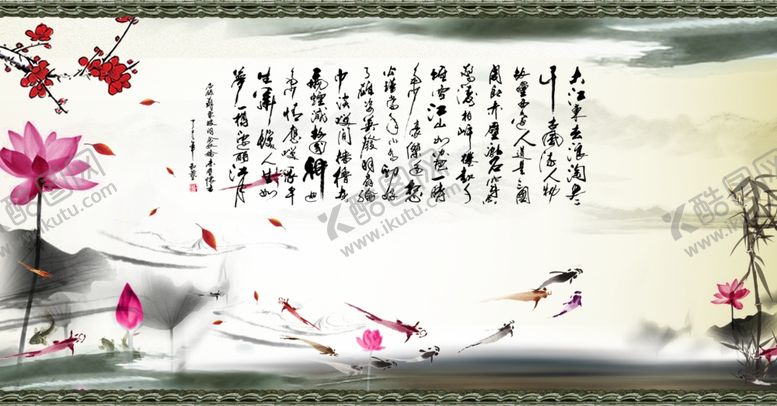 大江東去浪淘尽
千古風流人物
故壘西邊人道是三國
周郎赤壁乱石
驚濤拍岸捲起千
堆雪江山如画一時
多少豪傑遥想
公瑾當年小喬初嫁
了雄姿英發羽扇綸
巾談笑間檣櫓
煙滅故國神遊
多情應笑我早
生華髮人生如
夢一樽還酹江月
酷图网
www.ikutu.com
酷图网
www.ikutu.com
酷图网
www.ikutu.com